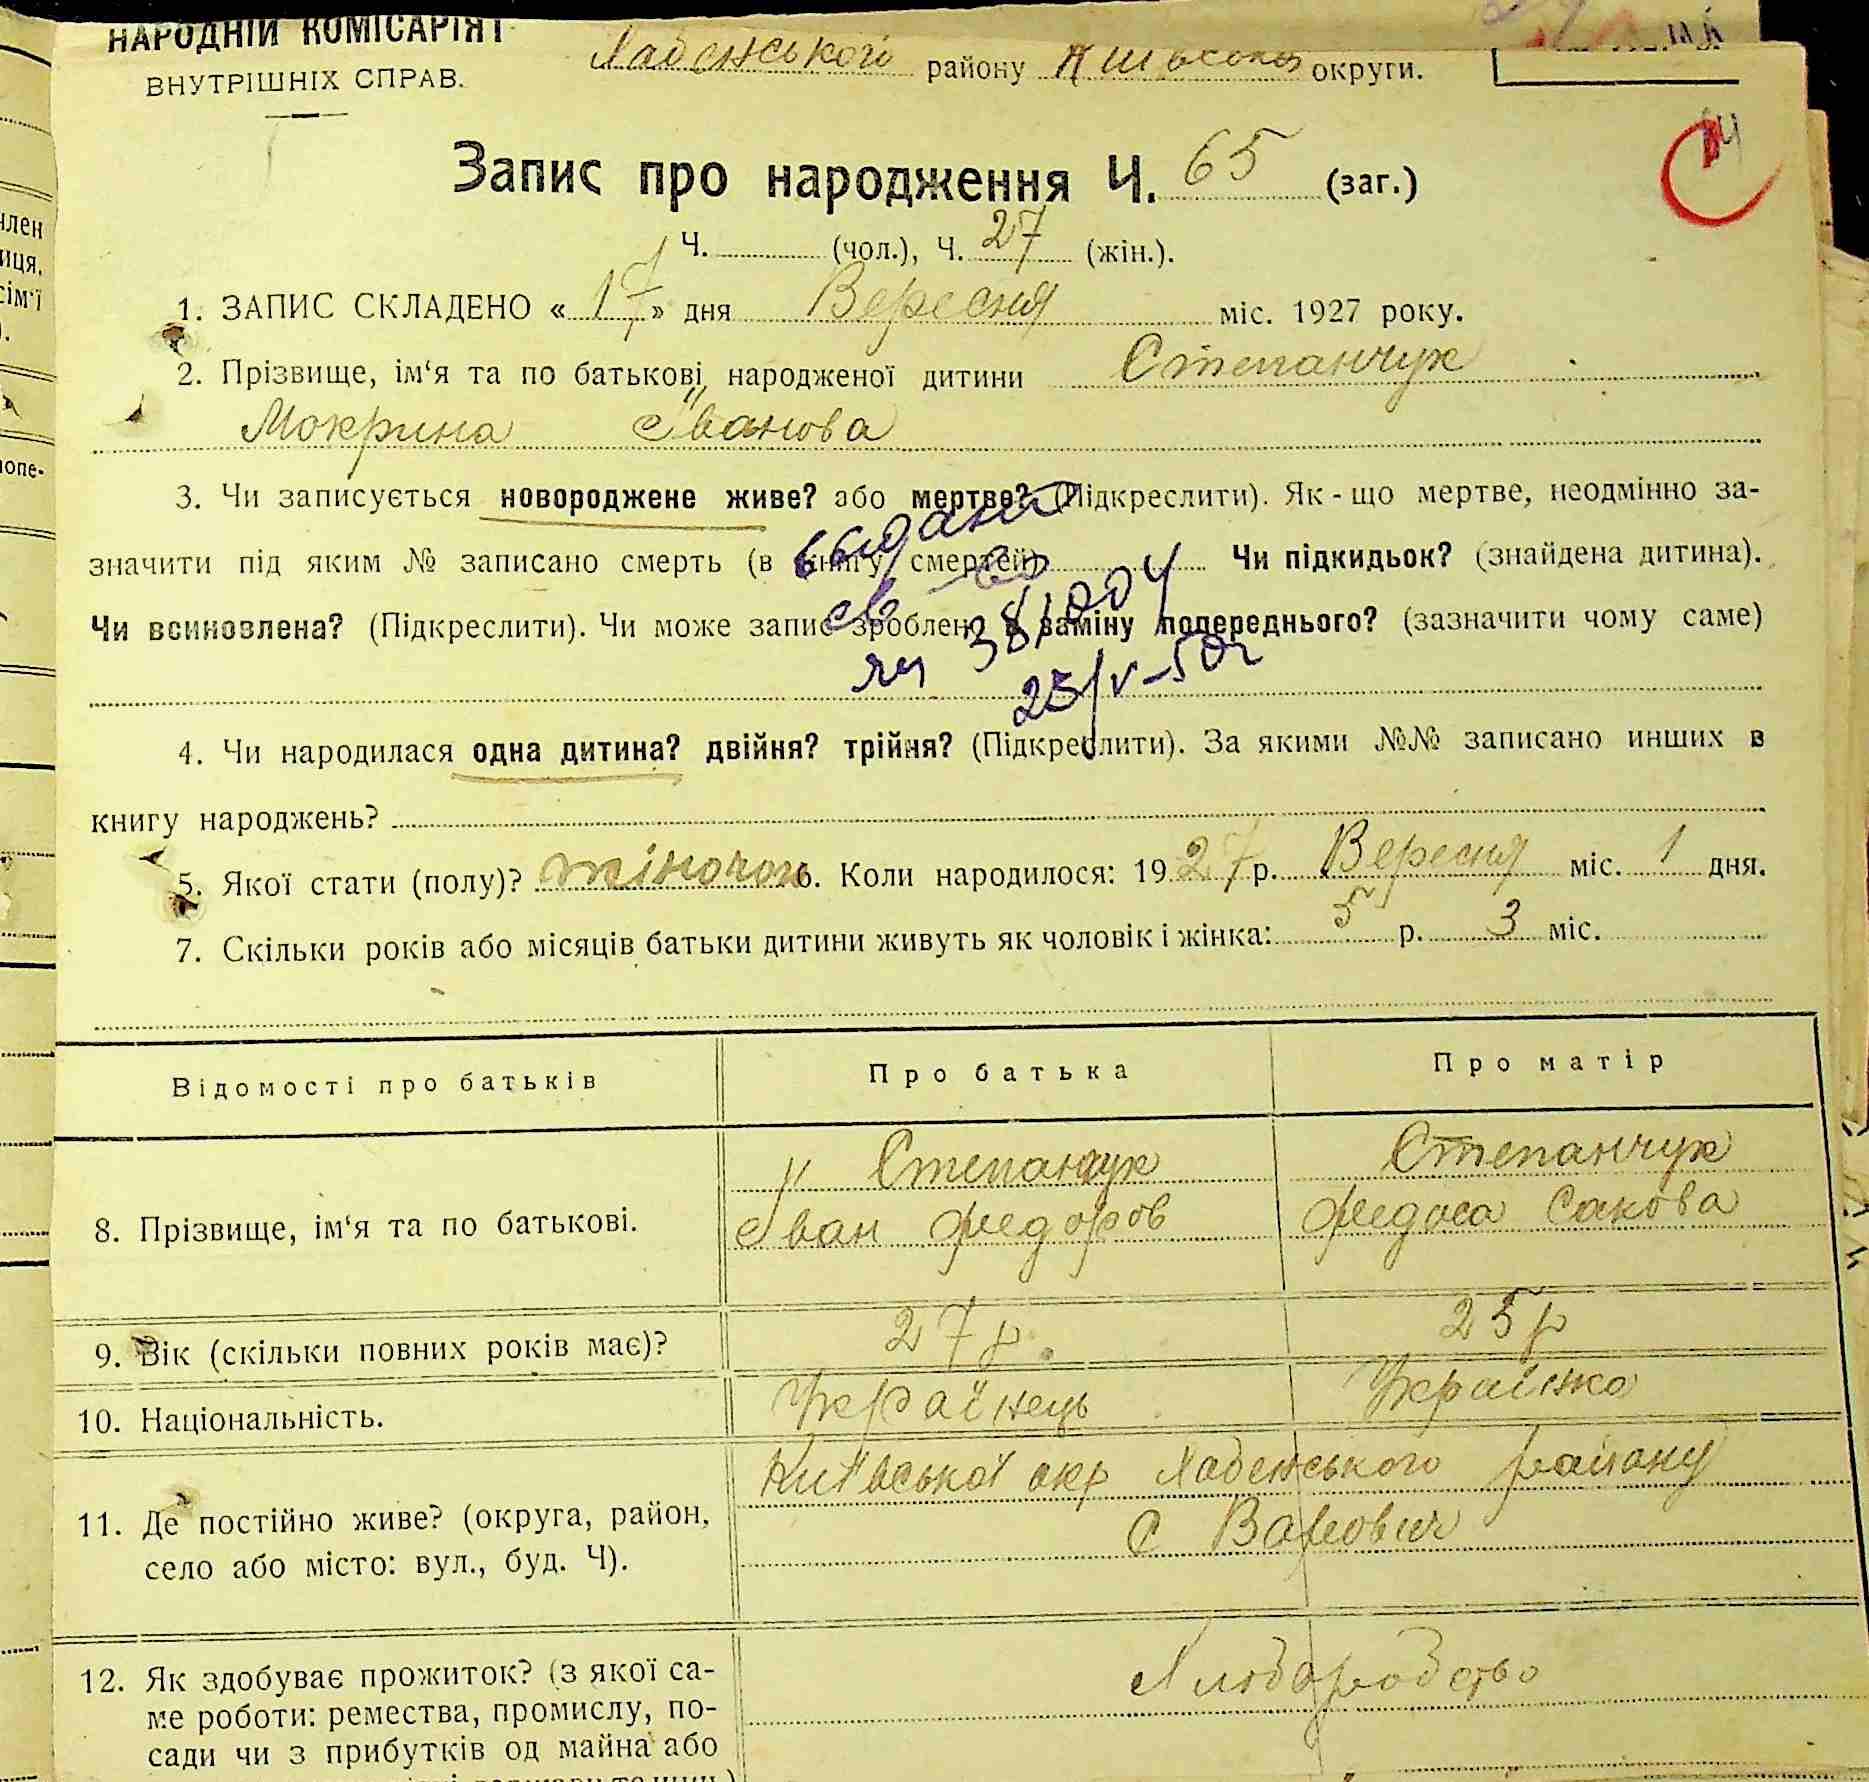 НАРОДНІЙ КОМІСАРІЯТ
ВНУТРІШНІХ СПРАВ.
району округи.
Запис про народження Ч. 65 (заг.)
Ч. (чол.), Ч. 27 (жін.).
1. ЗАПИС СКЛАДЕНО « 17 » дня Вересня міс. 1927 року.
2. Прізвище, ім‘я та по батькові народженої дитини Степанчук
Мокрина Іванова
3. Чи записується новороджене живе? або мертве? (Підкреслити). Як-що мертве, неодмінно за-
значити під яким № записано смерть (в книгу смертей) Чи підкидьок? (знайдена дитина).
Чи всиновлена? (Підкреслити). Чи може запис зроблено в заміну попереднього? (зазначити чому саме)
выдано
св-во
яч 381004
23/V-50г
4. Чи народилася одна дитина? двійня? трійня? (Підкреслити). За якими №№ записано инших в
книгу народжень?
5. Якої стати (полу)? жіночої 6. Коли народилося: 1927 р. Вересня міс. 1 дня.
7. Скільки років або місяців батьки дитини живуть як чоловік і жінка: 5 р. 3 міс.
Відомості про батьків Про батька Про матір
Степанчук Степанчук
8. Прізвище, ім‘я та по батькові. Іван Федоров Федоса Сакова
9. Вік (скільки повних років має)? 27 р. 25 р
10. Національність. Українець Українка
Київської окр району
11. Де постійно живе? (округа, район, с Варовичі
село або місто: вул., буд. Ч).
12. Як здобуває прожиток? (з якої са- Хліборобство
ме роботи: ремества, промислу, по-
сади чи з прибутків од майна або
член
иця,
сім‘ї
опе-